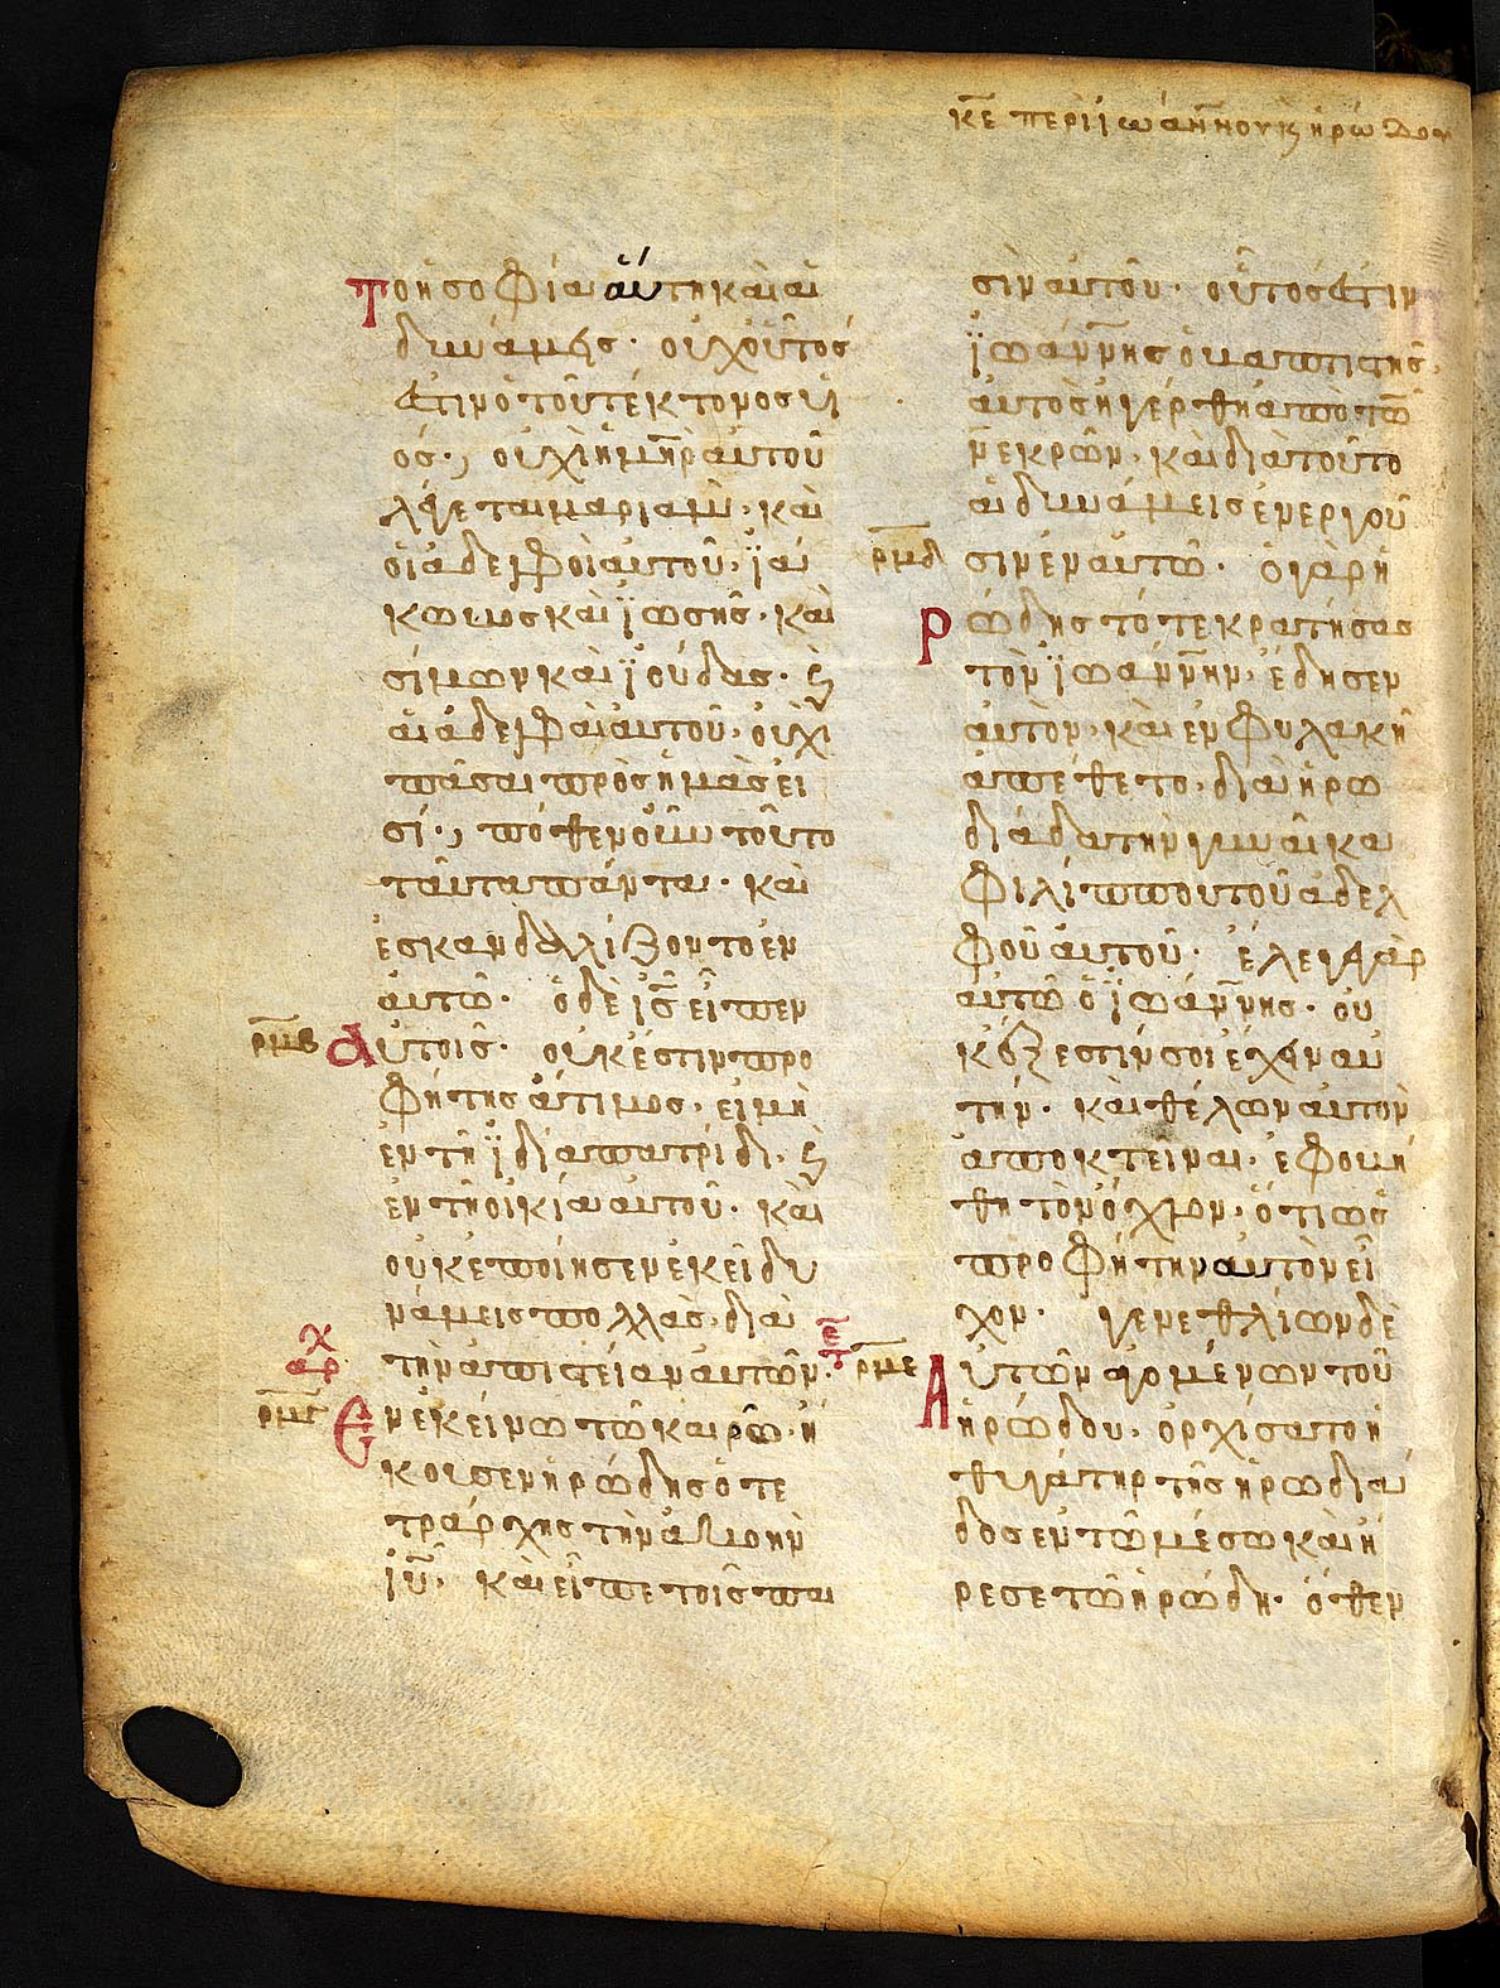 κε περὶ ἰωάννου κ ηρώδου
το ἡ σοφία αὕτη καὶ αἱ
δυνάμεις· οὐχ οὗτός
ἐστιν ὁ τοῦ τέκτονος υἱ
ός·, οὐχὶ ἡ μηρ αὐτοῦ
λέγεται μαριὰμ, καὶ
οἱ ἀδελφοὶ αὐτοῦ, ϊά
κωβος καὶ ϊωσῆς, καὶ
σίμων καὶ ϊούδας· ϗ
αἱ ἀδελφαὶ αὐτοῦ, οὐχὶ
πᾶσαι πρὸς ἡμᾶς εἰ
σί·, πόθεν οὖν τοῦτο
ταῦτα πάντα· καὶ
ἐσκανδαλίζοντο ἐν
αὐτῶ· ὁ δὲ ις εἶπεν
ρμβ αὐτοῖς· οὐκ ἔστιν προ
φήτης ἄτιμος, εἰ μὴ
ἐν τῆ ϊδία πατρίδι, ϗ
ἐν τῆ οἰκία αὐτοῦ· καὶ
οὐκ ἐποίησεν ἐκεῖ δυ
νάμεις πολλὰς, διὰ
τὴν ἀπιστείαν αὐτῶν·
αρχ
ρμγ Ἐν ἐκείνω τῶ καιρῶ, ἤ
κουσεν ἡρώδης ὁ τε
τράρχης τὴν ἀκοὴν
ιυ, καὶ εἶπε τοῖς παι
σὶν αὐτοῦ· οὗτός ἐστιν
ϊωάννης ὁ βαπτιστὴς,
αὐτὸς ἠγέρθη ἀπὸ τῶ
νεκρῶν, καὶ διὰ τοῦτο
αἱ δυνάμεις ἐνεργοῦ
ρμδ σιν ἐν αὐτῶ· ὁ γὰρ ἡ
Ρώδης τότε κρατήσας
τὸν ϊωάννην, ἔδησεν
αὐτὸν, καὶ ἐν φυλακῆ
ἀπέθετο, διὰ ἡρω
διάδα τὴν γυναῖκα
φιλίππου τοῦ ἀδελ
φοῦ αὐτοῦ· ἔλεγε γὰρ
αὐτῶ ὁ ϊωάννης· οὐ
κ ἔξεστίν σοι ἔχειν αὐ
τήν· καὶ θέλων αὐτὸν
ἀποκτεῖναι, ἐφοβή
θη τὸν ὄχλον, ὅτι ὡς
προφήτην αὐτὸν εἶ
χον· γενεθλίων δὲ
ρμε Ἀυτῶν ἀγομένων τοῦ
ἡρώδου, ὀρχίσατο ἡ
θυγάτηρ τῆς ἡρωδιά
δος ἐν τῶ μέσω καὶ ἤ
ρεσε τῶ ἡρώδη· ὅθεν